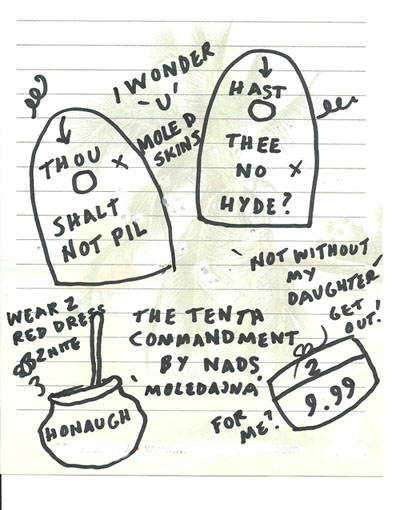 I WONDER
-U'
MOLE D
SKINS
THOU X
SHALT
NOT PIL
HAST
THEE
NO X
HYDE?
NOT WITHOUT
MY
DAUGHTER
GET
OUT!
WEAR 2
RED DRESS
2NITE
3
THE TENTH
COMMANDMENT
BY NADS
MOLEDAJNA
HONAUGH
2
9.99
FOR
ME?